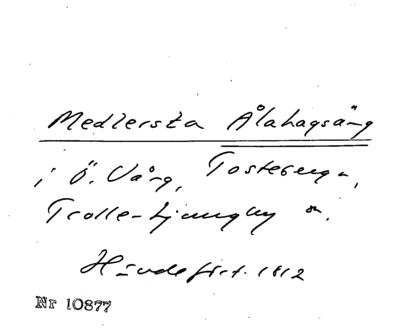 Medlersta Ålahagsäng
i Ö. Vång, Tosteberga,
Trolle-Ljungby sn.
Häradsrätt. 1812
Nr 10877